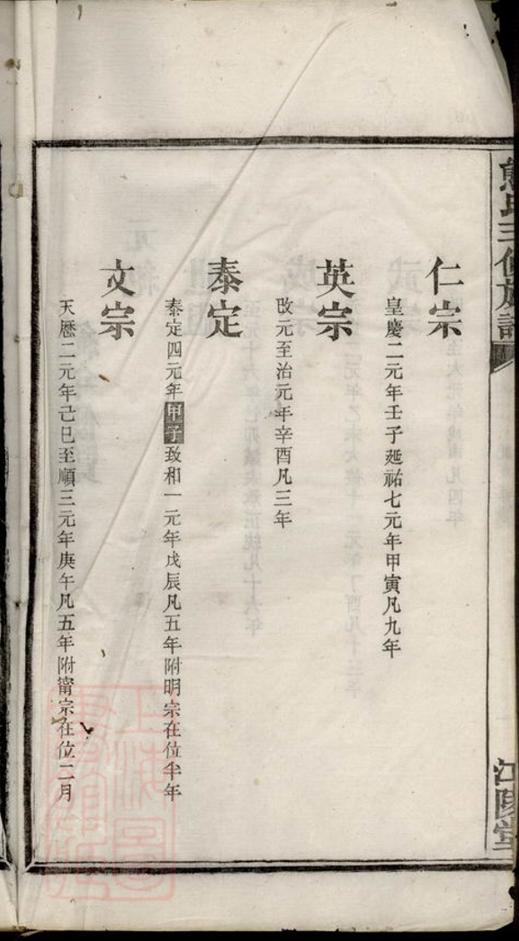 仁宗
皇慶二元年壬子延祐七元年甲寅凡九年
英宗
改元至治元年辛酉凡三年
泰定
泰定四元年甲子致和一元年戊辰凡五年附明宗在位半年
文宗
天曆二元年己巳至順三元年庚午凡五年附甯宗在位二月
江陵堂
上海圖書館藏